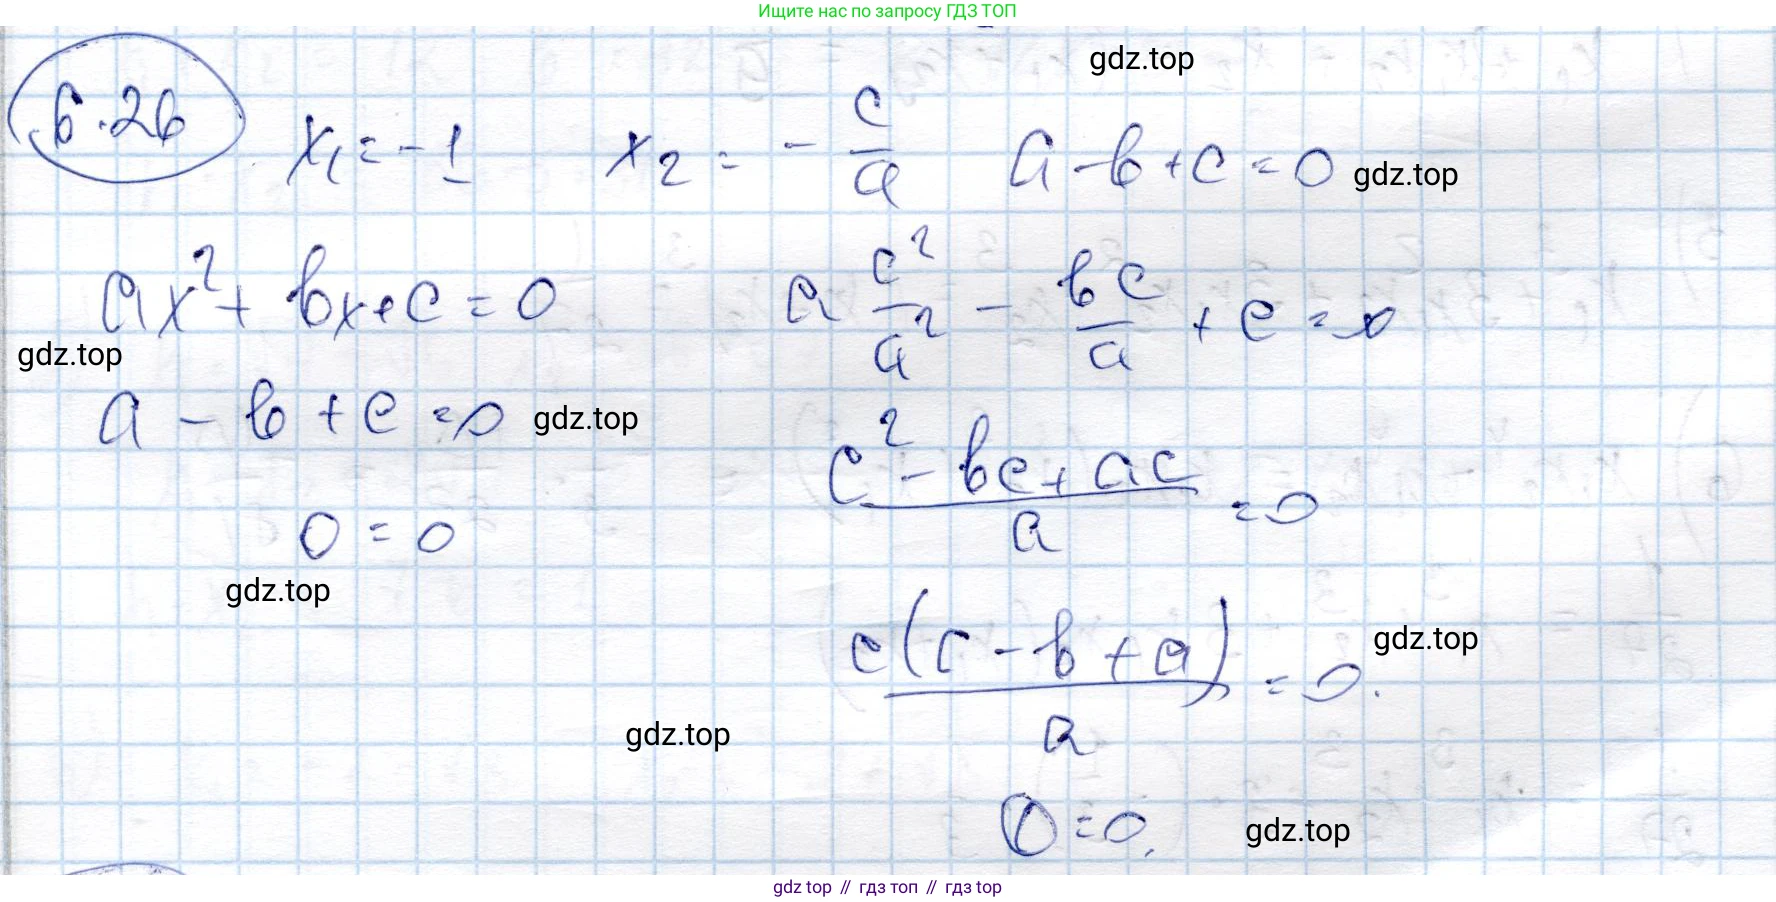 Ищите нас по запросу ГДЗ ТОП
gdz.top
6.26
x₁ = -1 x₂ = -c/a a - b + c = 0 gdz.top
ax² + bx + c = 0 a c²/a² - bc/a + c = 0
gdz.top
a - b + c = 0 gdz.top
(c² - bc + ac)/a = 0
0 = 0
gdz.top
c(c - b + a)/a = 0. gdz.top
gdz.top
0 = 0. gdz.top
gdz top // гдз топ // гдз top